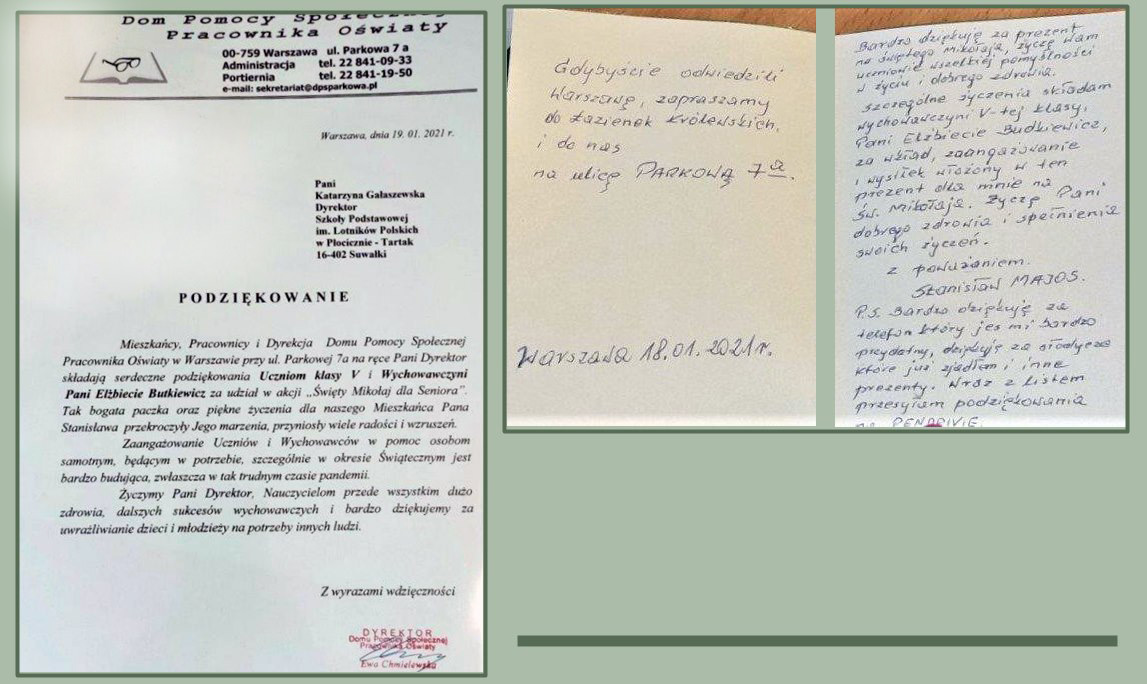 Dom Pomocy Społecznej
Pracownika Oświaty
00-759 Warszawa ul. Parkowa 7 a
Administracja tel. 22 841-09-33
Portiernia tel. 22 841-19-50
e-mail: sekretariat@dpsparkowa.pl
Warszawa, dnia 19. 01. 2021 r.
Pani
Katarzyna Gałaszewska
Dyrektor
Szkoły Podstawowej
im. Lotników Polskich
w Płocicznie - Tartak
16-402 Suwałki
PODZIĘKOWANIE
Mieszkańcy, Pracownicy i Dyrekcja Domu Pomocy Społecznej
Pracownika Oświaty w Warszawie przy ul. Parkowej 7a na ręce Pani Dyrektor
składają serdeczne podziękowania Uczniom klasy V i Wychowawczyni
Pani Elżbiecie Butkiewicz za udział w akcji „Święty Mikołaj dla Seniora”.
Tak bogata paczka oraz piękne życzenia dla naszego Mieszkańca Pana
Stanisława przekroczyły Jego marzenia, przyniosły wiele radości i wzruszeń.
Zaangażowanie Uczniów i Wychowawców w pomoc osobom
samotnym, będącym w potrzebie, szczególnie w okresie Świątecznym jest
bardzo budująca, zwłaszcza w tak trudnym czasie pandemii.
Życzymy Pani Dyrektor, Nauczycielom przede wszystkim dużo
zdrowia, dalszych sukcesów wychowawczych i bardzo dziękujemy za
uwrażliwianie dzieci i młodzieży na potrzeby innych ludzi.
Z wyrazami wdzięczności
DYREKTOR
Domu Pomocy Społecznej
Pracownika Oświaty
Ewa Chmielewska
Gdybyście odwiedzili
Warszawę, zapraszamy
do Łazienek Królewskich,
i do nas
na ulicę PARKOWĄ 7a.
Warszawa 18.01.2021r.
Bardzo dziękuję za prezent
na świętego Mikołaja, życzę Wam
uczniowie wszelkiej pomyślności
w życiu i dobrego zdrowia.
Szczególne życzenia składam
wychowawczyni V-tej klasy,
Pani Elżbiecie Budkiewicz,
za wkład, zaangażowanie
i wysiłek włożony w ten
prezent dla mnie na
Św. Mikołaja. Życzę Pani
dobrego zdrowia i spełnienia
swoich życzeń.
z poważaniem.
Stanisław MAJOS.
P.S. Bardzo dziękuję za
telefon który jes mi bardzo
przydatny, dziękuję za słodycze
które już zjadłem i inne
prezenty. Wraz z Listem
przesyłam podziękowania
na PENDRIVIE.